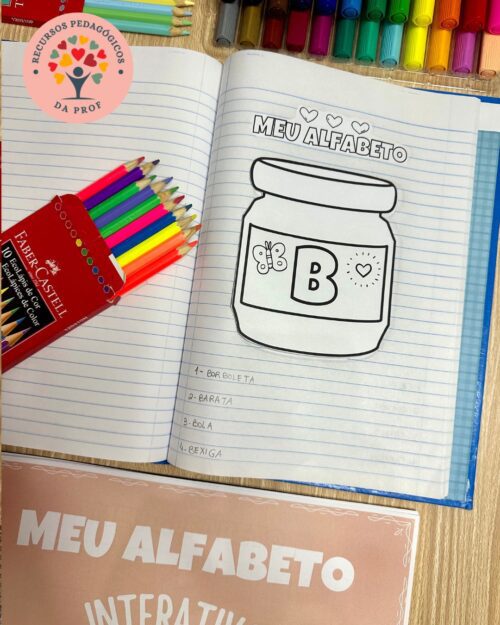 RECURSOS PEDAGÓGICOS
DA PROF
MEU ALFABETO
B
1- BORBOLETA
2- BARATA
3- BOLA
4- BEXIGA
FABER-CASTELL
10 EcoLápis de Cor
EcoLápices de Color
MEU ALFABETO